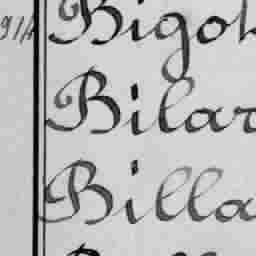 Bigot
Bilar
Billa